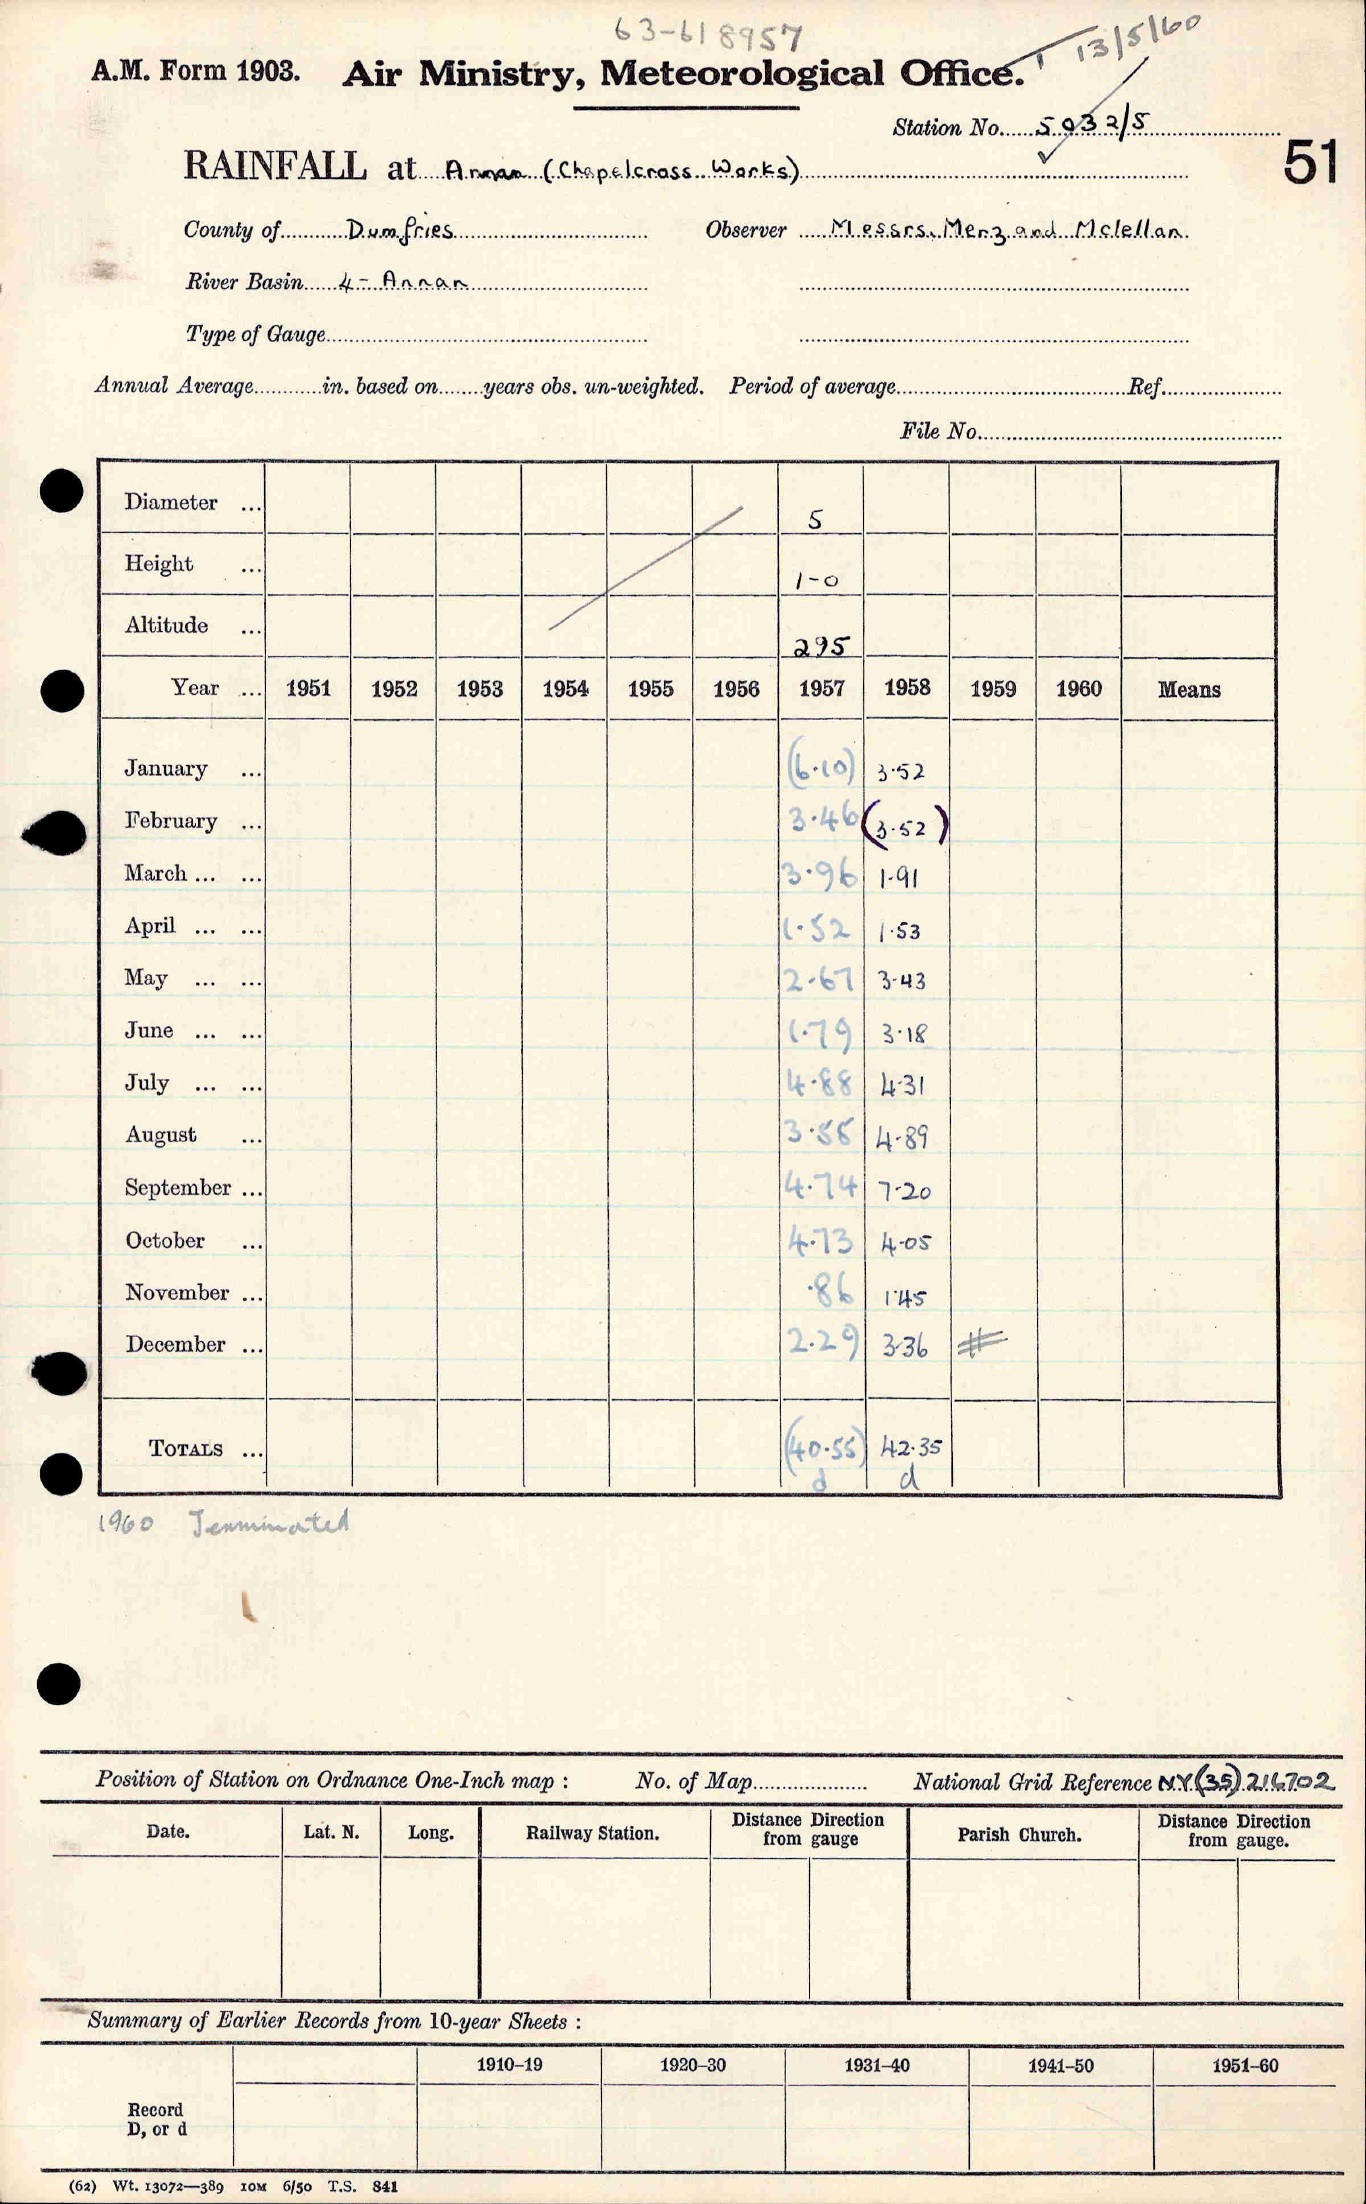 63-618957
T 13/5/60
A.M. Form 1903. Air Ministry, Meteorological Office.
Station No. 5032/5
51
RAINFALL at Annan (Chapelcross Works)
County of Dumfries Observer Messrs. Merz and Mclellan
River Basin 4 - Annan
Type of Gauge
Annual Average in. based on years obs. un-weighted. Period of average Ref.
File No.
Diameter ... 5
Height ... 1-0
Altitude ... 295
Year ... 1951 1952 1953 1954 1955 1956 1957 1958 1959 1960 Means
January ... (6.10) 3.52
February ... 3.46 (3.52)
March ... ... 3.96 1.91
April ... ... 1.52 1.53
May ... ... 2.67 3.43
June ... ... 1.79 3.18
July ... ... 4.88 4.31
August ... 3.55 4.89
September ... 4.74 7.20
October ... 4.73 4.05
November ... .86 1.45
December ... 2.29 3.36
TOTALS ... (40.55) 42.35
d d
1960 Terminated
Position of Station on Ordnance One-Inch map : No. of Map National Grid Reference NY(35)216702
Date. Lat. N. Long. Railway Station. Distance Direction from gauge Parish Church. Distance Direction from gauge.
Summary of Earlier Records from 10-year Sheets :
1910–19 1920–30 1931–40 1941–50 1951–60
Record
D, or d
(62) Wt. 13072—389 10M 6/50 T.S. 841